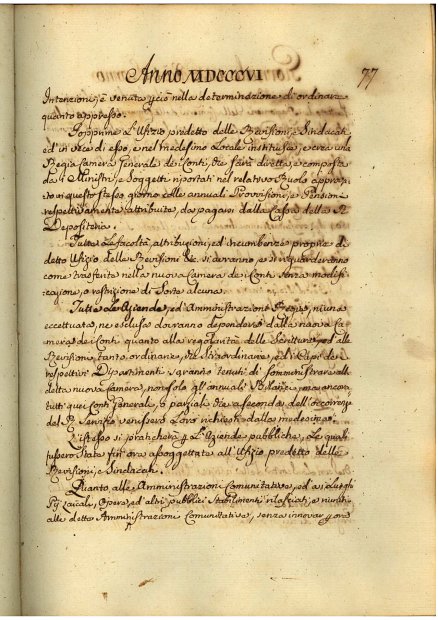 Anno MDCCCVI
77
Intenzioni, è venuta perciò nella determinazione di ordinare
quanto appresso.
Sopprime l'Ufizio predetto delle Revisioni, e Sindacati,
ed in vece di esso, e nel medesimo Locale instituisce, e crea una
Regia Camera Generale dei Conti, che sarà diretta, e composta
dai Ministri, e Soggetti riportati nel relativo Ruolo approva-
to in questo stesso giorno colle annuali Provvisioni, e Pensioni
respettivamente attribuite, da pagarsi dalla Cassa della R.
Depositeria.
Tutte le facoltà, attribuzioni, ed incumbenze proprie di
detto Ufizio delle Revisioni &c. si daranno, e si riguarderanno
come trasferite nella nuova Camera dei Conti senza modifi-
cazione, o restrizione di sorte alcuna.
Tutte le Aziende, ed Amministrazioni Regie, niuna
eccettuata, ne esclusa dovranno dependere dalla nuova Ca-
mera dei Conti quanto alla regolarità delle Scritture, ed alle
Revisioni, tanto ordinarie, che straordinarie, ed i Capi dei
respettivi Dipartimenti saranno tenuti di somministrare alla
detta nuova Camera, non solo gli annuali Bilanci, ma ancora
tutti quei Conti Generali, o parziali che a seconda dell'occorrenze
del R. Servizio venissero loro richiesti dalla medesima.
L'istesso si praticherà per l'Aziende pubbliche, le quali
fussero state fin'ora assoggettate all'Ufizio predetto delle
Revisioni, e Sindacati.
Quanto alle Amministrazioni Comunitative, ed ai Luoghi
Pij Laicali, Opere, ed altri pubblici Stabilimenti rilasciati, e riuniti
alle dette Amministrazioni Comunitative, senza innovar per ora